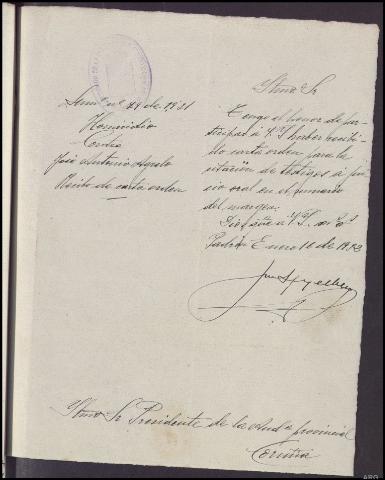 Sumº nº 49 de 1931
Homicidio
Contra
José Antonio Agrelo
Recibo de carta orden
Iltmo Sr
Tengo el honor de par-
ticipar á V.S.I. haber recibi-
do carta orden para la
citación de testigos á jui-
cio oral en el sumario
del margen.
Dios gûe á V.S.I. m. aˢ
Padrón Enero 10 de 1933
Iltmo Sr Presidente de la Audª provincial
Coruña
ARG